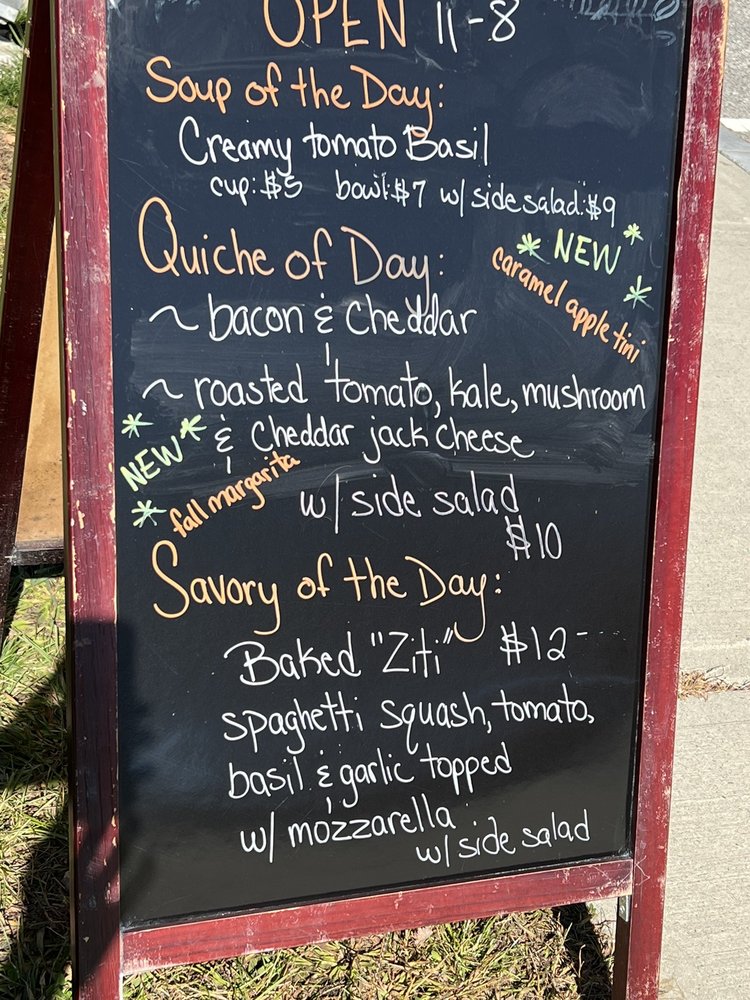 OPEN 11-8
Soup of the Day:
Creamy tomato Basil
cup:$5 bowl:$7 w/ side salad:$9
Quiche of Day:
NEW
caramel apple tini
~ bacon & cheddar
~ roasted tomato, kale, mushroom
& cheddar jack cheese
NEW
fall margarita
w/ side salad
$10
Savory of the Day:
Baked "Ziti" $12-
spaghetti squash, tomato,
basil & garlic topped
w/ mozzarella
w/ side salad